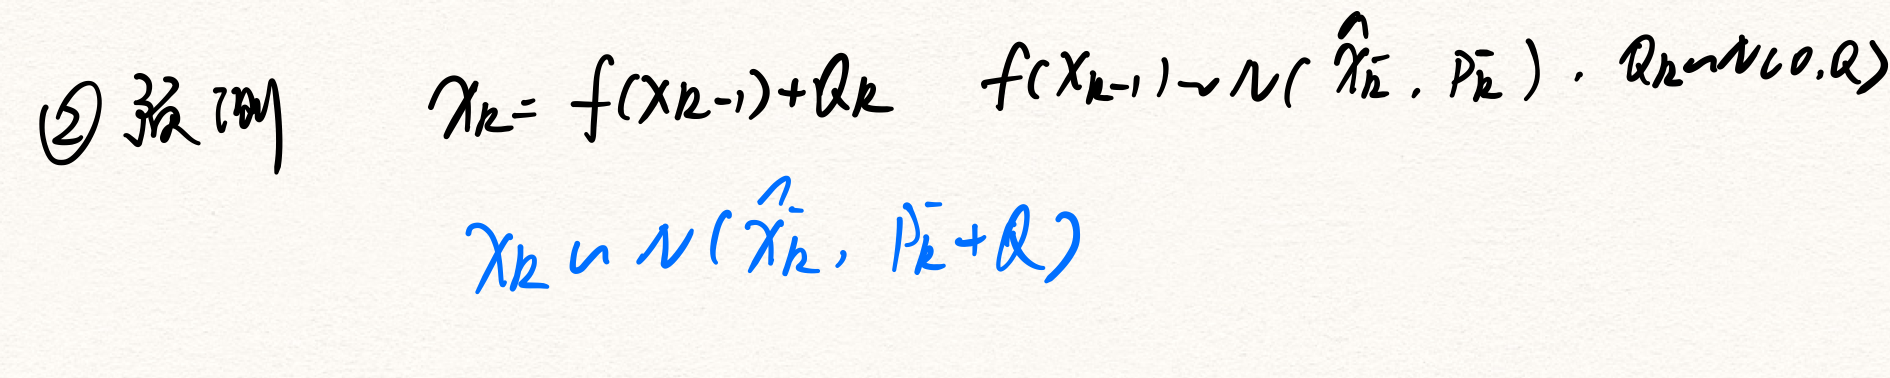 ② 预测 x_k = f(x_{k-1}) + Q_k f(x_{k-1}) ~ N( x̂_k^-, P_k^- ). Q_k ~ N(0, Q)
x_k ~ N( x̂_k^-, P_k^- + Q )